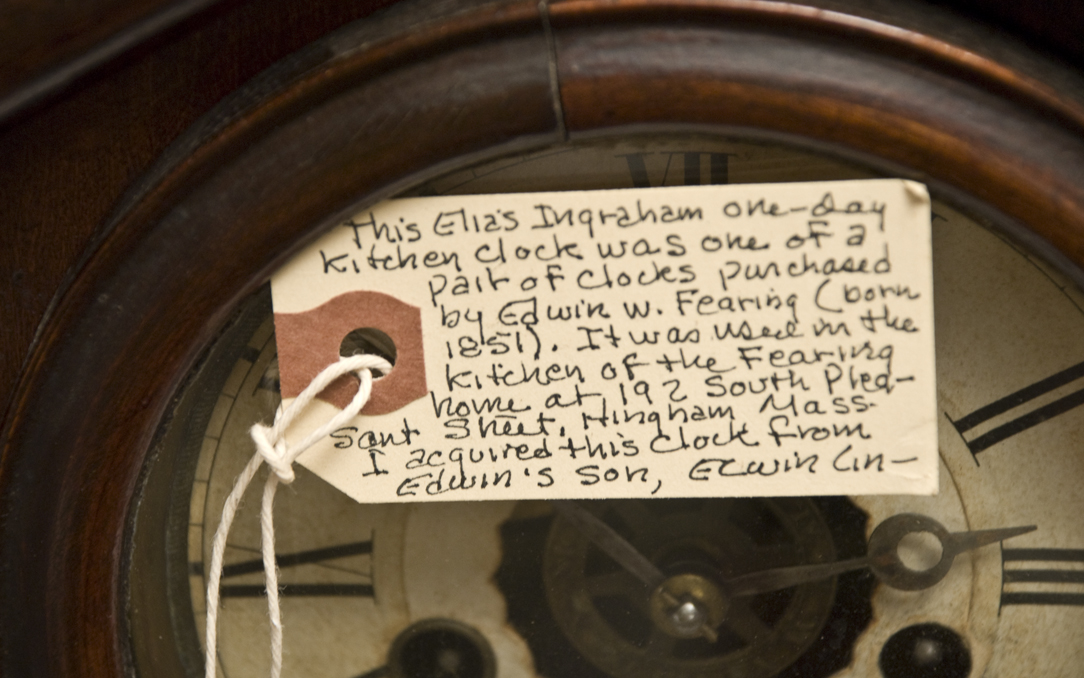 XII
This Elias Ingraham one-day
kitchen clock was one of a
pair of clocks purchased
by Edwin W. Fearing (born
1851). It was used in the
kitchen of the Fearing
home at 192 South Plea-
sant Street, Hingham Mass.
I acquired this clock from
Edwin's son, Edwin Lin-
II
III
IX